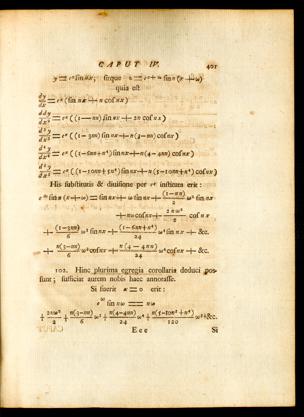 CAPUT IV. 401
y = eˣ sin nx; sitque z = eˣ⁺ω sin n(x+ω)
quia est
dy/dx = eˣ (sin nx + n cos nx)
ddy/dx² = eˣ ((1−nn) sin nx + 2n cos nx)
d³y/dx³ = eˣ ((1−3nn) sin nx + n(3−nn) cos nx)
d⁴y/dx⁴ = eˣ ((1−6nn+n⁴) sin nx + n(4−4nn) cos nx)
d⁵y/dx⁵ = eˣ ((1−10nn+5n⁴) sin nx + n(5−10nn+n⁴) cos nx)
His substitutis & divisione per eˣ instituta erit:
e^ω sin n (x+ω) = sin nx + ω sin nx + (1−nn)/2 ω² sin nx
+ nω cos nx + 2nω²/2 cos nx
+ (1−3nn)/6 ω³ sin nx + (1−6nn+n⁴)/24 ω⁴ sin nx + &c.
+ n(3−nn)/6 ω³ cos nx + n(4−4nn)/24 ω⁴ cos nx + &c.
102. Hinc plurima egregia corollaria deduci pos-
sunt; sufficiat autem nobis haec annotasse.
Si fuerit x = 0 erit:
e^ω sin nω = nω
+ 2nω²/2 + n(3−nn)/6 ω³ + n(4−4nn)/24 ω⁴ + n(5−10n²+n⁴)/120 ω⁵ + &c.
Eee Si